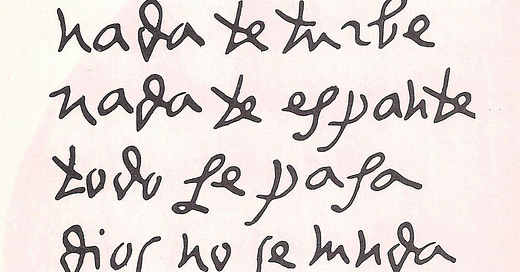 nada te turbe
nada te espante
todo se pasa
dios no se muda